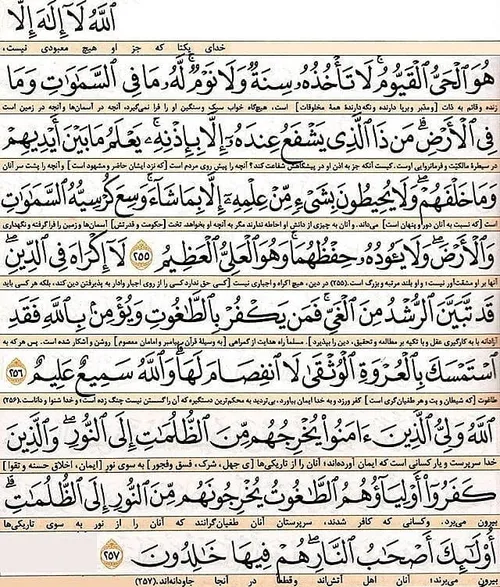 ٱللَّهُ لَآ إِلَٰهَ إِلَّا
خدای یکتا که جز او هیچ معبودی نیست،
هُوَ ٱلْحَىُّ ٱلْقَيُّومُ ۚ لَا تَأْخُذُهُۥ سِنَةٌ وَلَا نَوْمٌ ۚ لَّهُۥ مَا فِى ٱلسَّمَٰوَٰتِ وَمَا
زنده و قائم به ذات [و مدبر و برپا دارنده و نگه دارندۀ همۀ مخلوقات] است، هیچگاه خواب سبک و سنگین او را فرا نمی‌گیرد، آنچه در آسمان‌ها و آنچه در زمین است
فِى ٱلْأَرْضِ ۗ مَن ذَا ٱلَّذِى يَشْفَعُ عِندَهُۥٓ إِلَّا بِإِذْنِهِۦ ۚ يَعْلَمُ مَا بَيْنَ أَيْدِيهِمْ
در سیطرۀ مالکیّت و فرمانروایی اوست. کیست آنکه جز به اذن او در پیشگاهش شفاعت کند؟ آنچه را پیش روی مردم است [که نزد ایشان حاضر و مشهود است] و آنچه را پشت سر آنان
وَمَا خَلْفَهُمْ ۖ وَلَا يُحِيطُونَ بِشَىْءٍ مِّنْ عِلْمِهِۦٓ إِلَّا بِمَا شَآءَ ۚ وَسِعَ كُرْسِيُّهُ ٱلسَّمَٰوَٰتِ
است [که نسبت به آنان دور و پنهان است] می‌داند. و آنان به چیزی از دانش او احاطه ندارند مگر به آنچه او بخواهد. تخت [حکومت و قدرتش] آسمان‌ها و زمین را فرا گرفته و نگهداری
وَٱلْأَرْضَ ۖ وَلَا يَـُٔودُهُۥ حِفْظُهُمَا ۚ وَهُوَ ٱلْعَلِىُّ ٱلْعَظِيمُ ٢٥٥ لَآ إِكْرَاهَ فِى ٱلدِّينِ ۖ
آنها بر او مشقّت‌آور نیست؛ و او بلند مرتبه و بزرگ است. (۲۵۵) در دین، هیچ اکراه و اجباری نیست [کسی حق ندارد کسی را از روی اجبار وادار به پذیرفتن دین کند، بلکه هر کسی باید
قَد تَّبَيَّنَ ٱلرُّشْدُ مِنَ ٱلْغَىِّ ۚ فَمَن يَكْفُرْ بِٱلطَّٰغُوتِ وَيُؤْمِنۢ بِٱللَّهِ فَقَدِ
آزادانه با به کارگیری عقل و با تکیه بر مطالعه و تحقیق، دین را بپذیرد]. مسلماً راه هدایت از گمراهی [به وسیلۀ قرآن، پیامبر و امامان معصوم] روشن و آشکار شده است. پس هر که به
ٱسْتَمْسَكَ بِٱلْعُرْوَةِ ٱلْوُثْقَىٰ لَا ٱنفِصَامَ لَهَا ۗ وَٱللَّهُ سَمِيعٌ عَلِيمٌ ٢٥٦
طاغوت [که شیطان و بت و هر طغیان‌گری است] کفر ورزد و به خدا ایمان بیاورد، بی‌تردید به محکم‌ترین دستگیره که آن را گسستن نیست چنگ زده است؛ و خدا شنوا و داناست. (۲۵۶)
ٱللَّهُ وَلِىُّ ٱلَّذِينَ ءَامَنُوا۟ يُخْرِجُهُم مِّنَ ٱلظُّلُمَٰتِ إِلَى ٱلنُّورِ ۖ وَٱلَّذِينَ
خدا سرپرست و یار کسانی است که ایمان آورده‌اند؛ آنان را از تاریکی‌ها [ی جهل، شرک، فسق و فجور] به سوی نور [ایمان، اخلاق حسنه و تقوا]
كَفَرُوٓا۟ أَوْلِيَآؤُهُمُ ٱلطَّٰغُوتُ يُخْرِجُونَهُم مِّنَ ٱلنُّورِ إِلَى ٱلظُّلُمَٰتِ ۗ
بیرون می‌برد. و کسانی که کافر شدند، سرپرستان آنان طغیان‌گرانند که آنان را از نور به سوی تاریکی‌ها
أُو۟لَٰٓئِكَ أَصْحَٰبُ ٱلنَّارِ ۖ هُمْ فِيهَا خَٰلِدُونَ ٢٥٧
بیرون می‌برند؛ آنان اهل آتش‌اند و قطعاً در آنجا جاودانه‌اند. (۲۵۷)